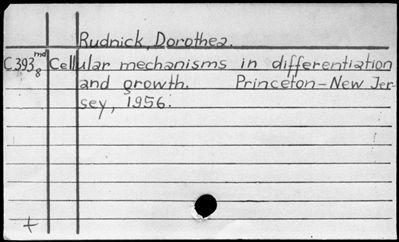 Rudnick, Dorothea.
C.393 md 8 Cellular mechanisms in differentiation
and growth. Princeton-New Jer-
sey, 1956.
+